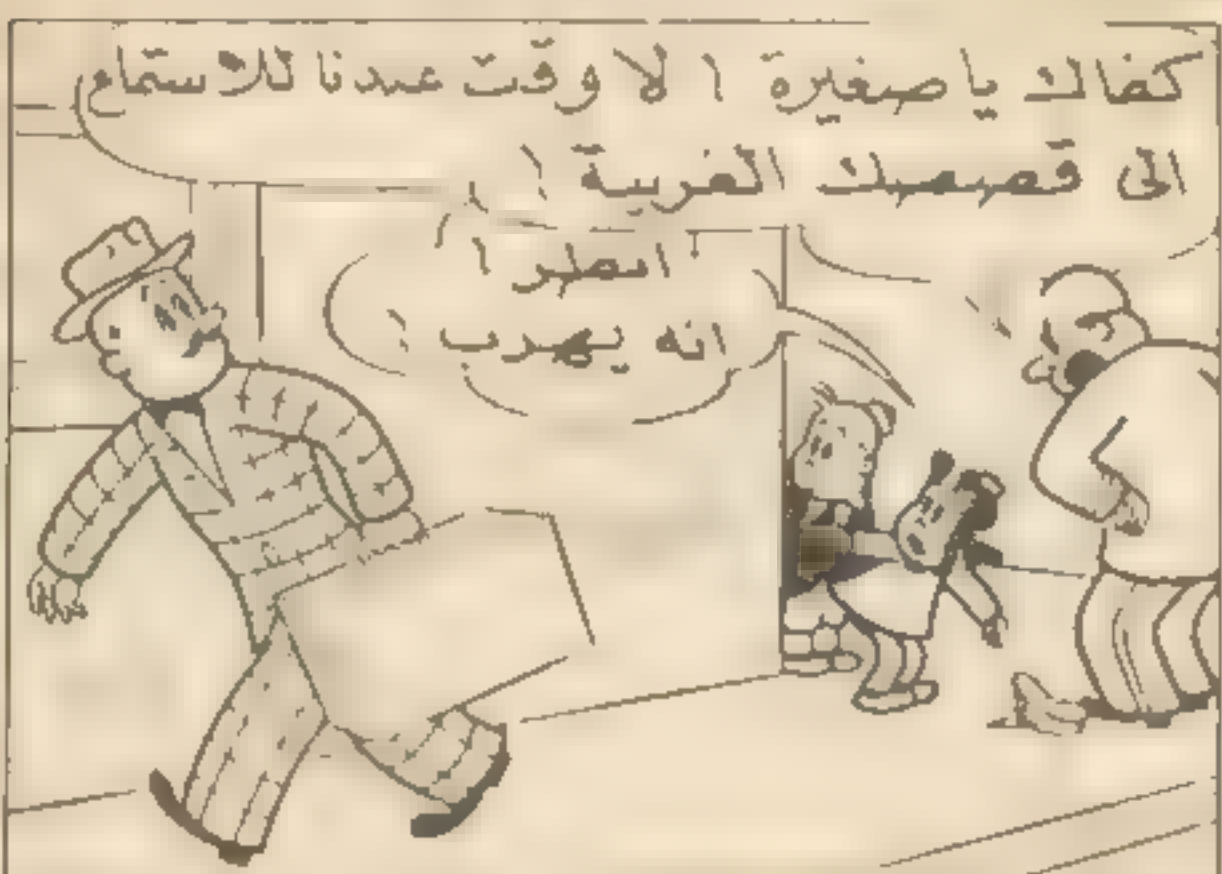 كفاك يا صغيرة ! لا وقت عندنا للاستماع
الى قصصك الغريبة !
انظر !
انه يهرب !